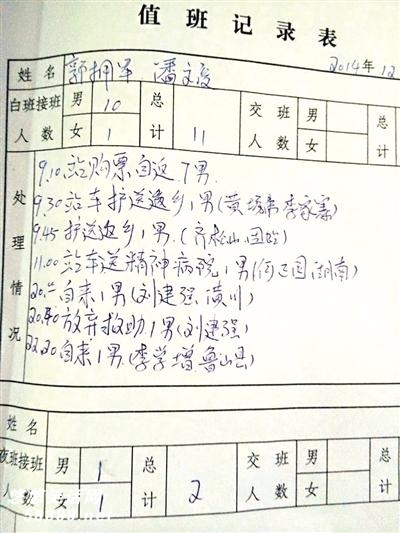 值班记录表
2014年12
姓名 郭拥军、潘文俊
白班接班人数 男 10 女 1 总计 11 交班人数 男 女 总计
处理情况
9.10站购票自返7男
9.30站车护送返乡1男(黄
9.45护送返乡1男.(齐松山
11.00站车送精神病院1男(何正国湖南)
自来1男(刘建强、潢川)
20.40放弃救助1男(刘建强)
22.20自来1男(李学增.鲁山县)
姓名
夜班接班人数 男 1 女 1 总计 2 交班人数 男 女 总计